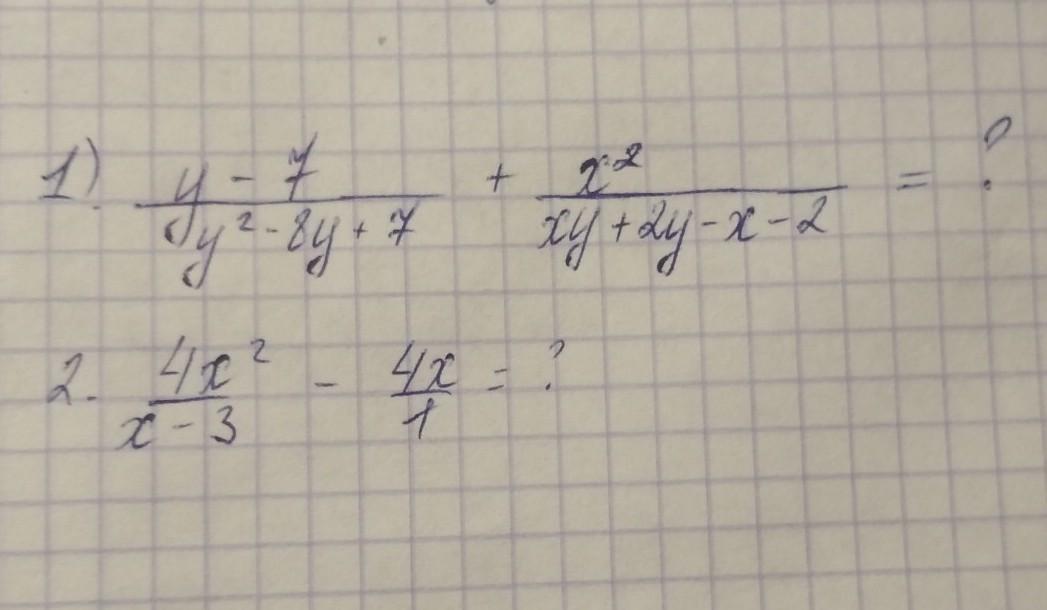 1) y - 7 / y² - 8y + 7 + x² / xy + 2y - x - 2 = ?
2. 4x² / x - 3 - 4x / 1 = ?